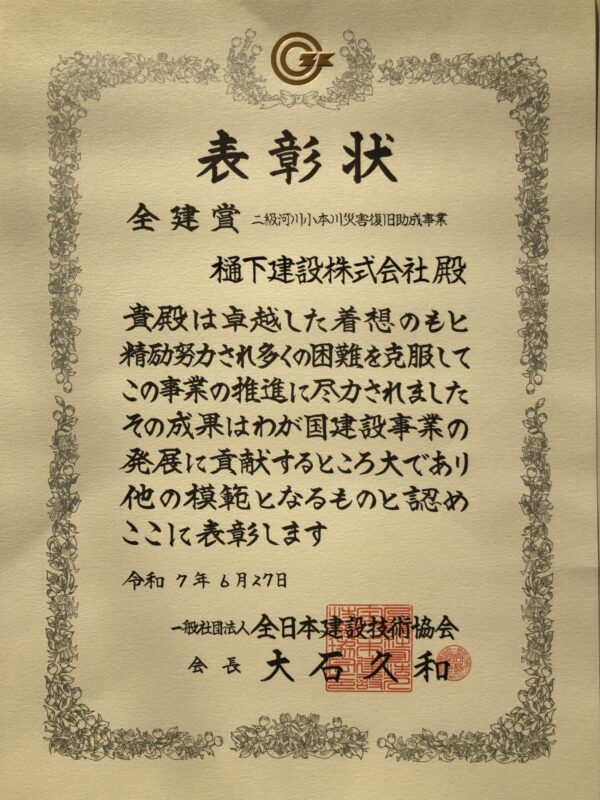 表彰状
全建賞 二級河川小本川災害復旧助成事業
樋下建設株式会社 殿
貴殿は卓越した着想のもと
精励努力され多くの困難を克服して
この事業の推進に尽力されました
その成果はわが国建設事業の
発展に貢献するところ大であり
他の模範となるものと認め
ここに表彰します
令和7年6月27日
一般社団法人 全日本建設技術協会
会長 大石久和